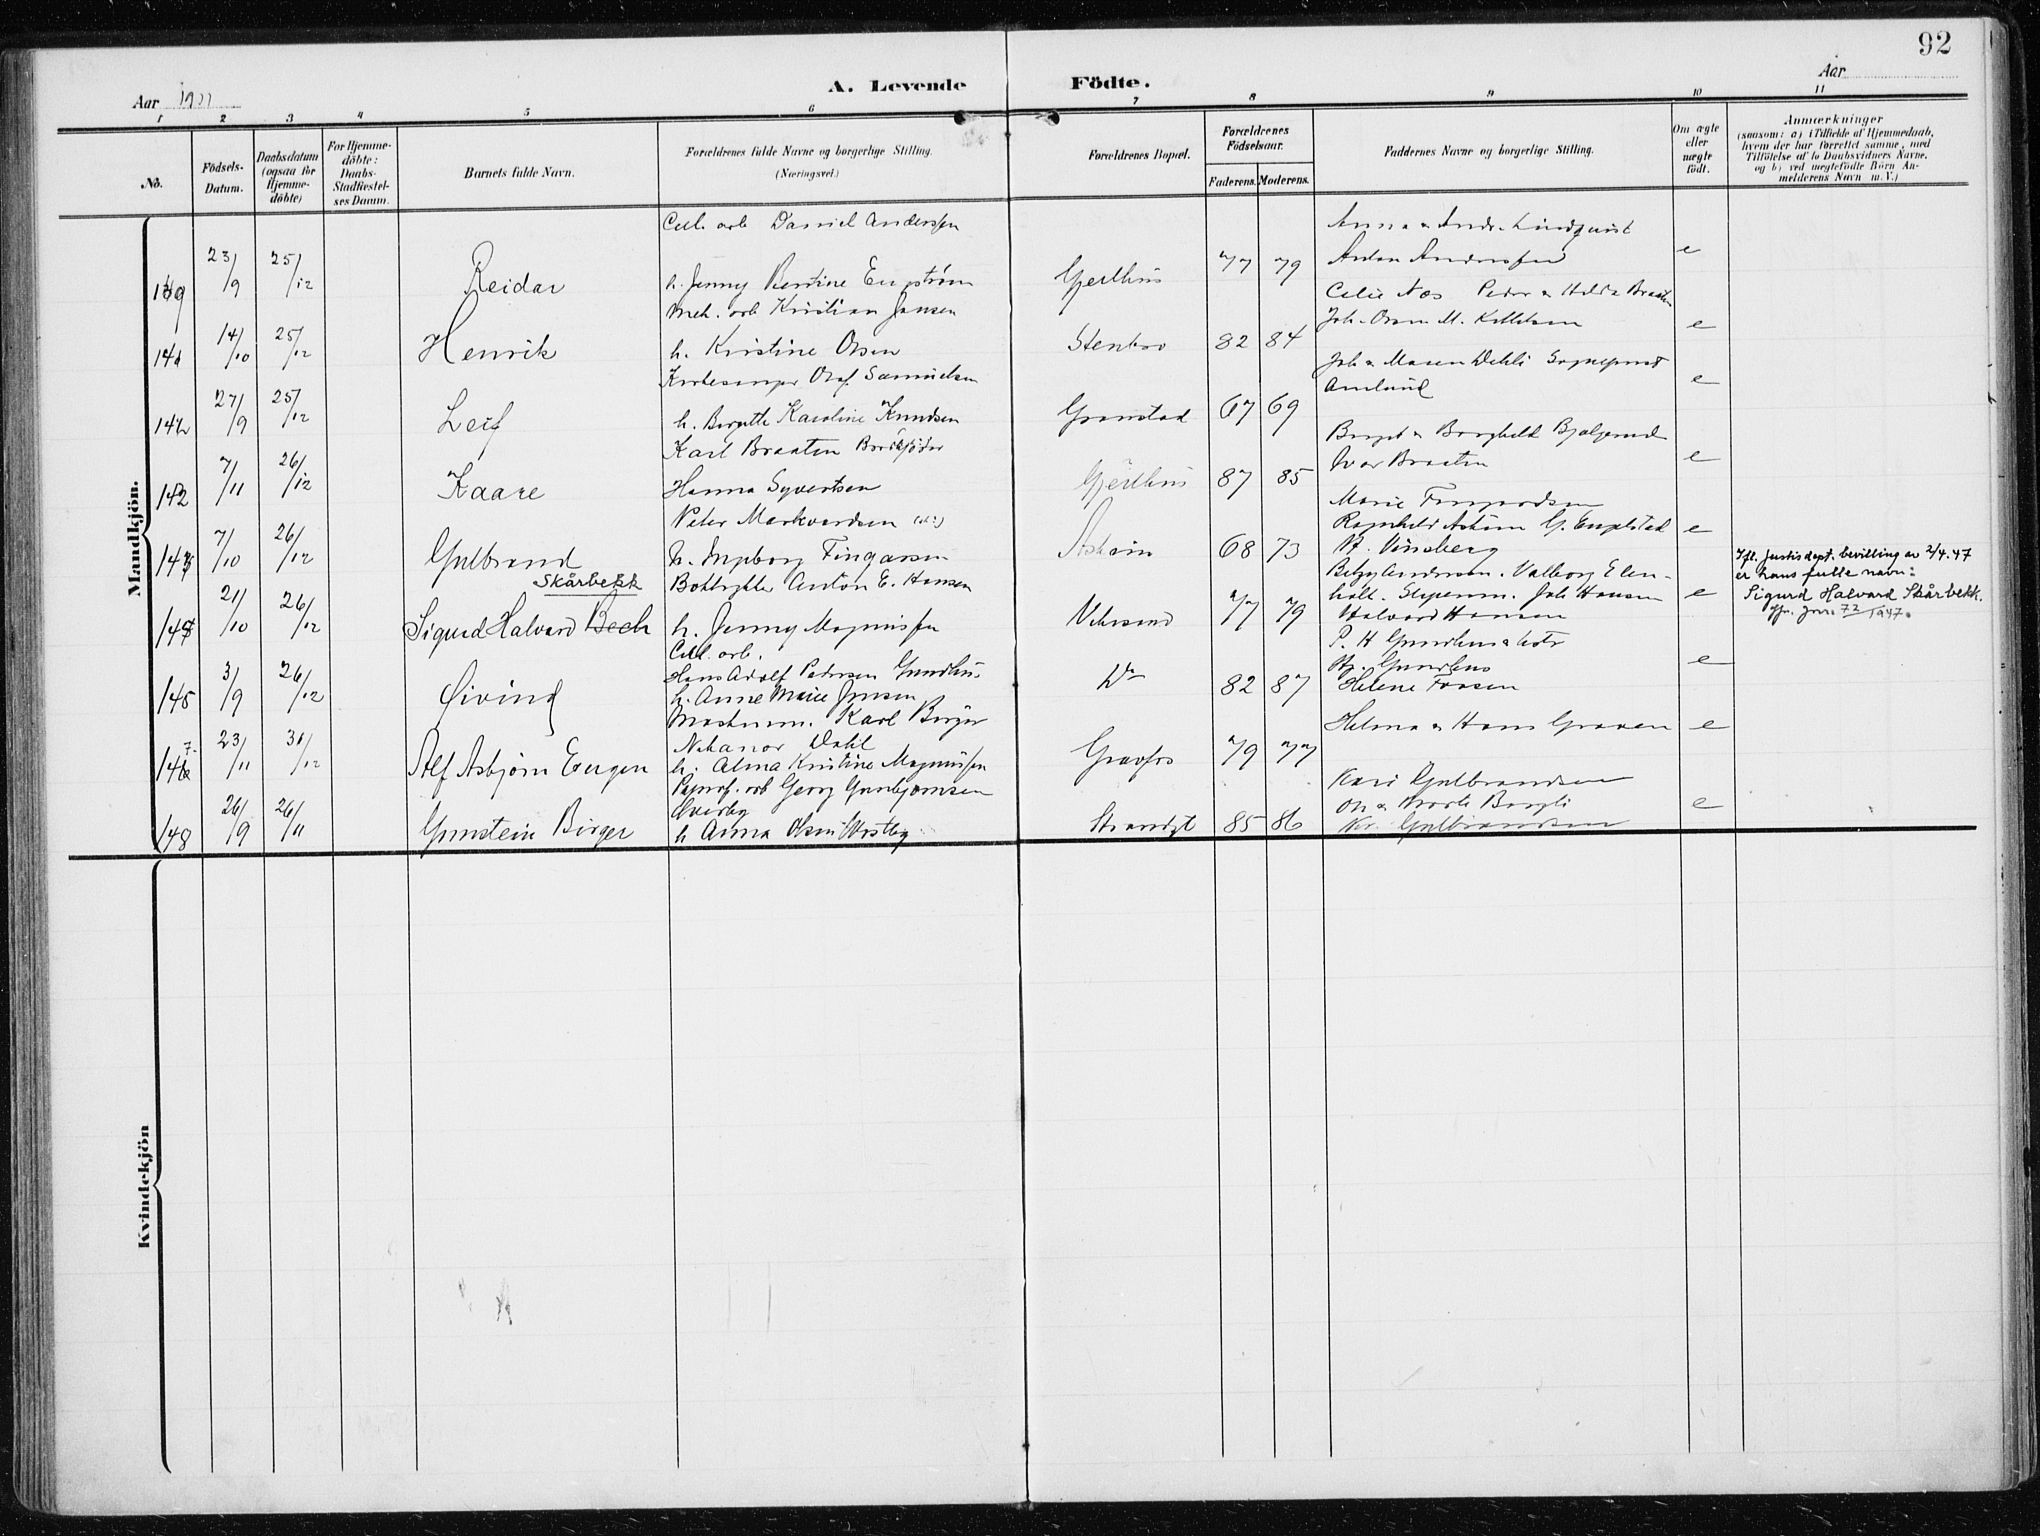 92
Aar 1911
A. Levende
Födte.
Aar
1 2 3 4 5 6 7 8 9 10 11
No.
Födsels-
Datum.
Daabsdatum
(ogsaa for
Hjemme-
döbte)
For Hjemme-
döbte:
Daabs-
Stadfæstel-
ses Datum.
Barnets fulde Navn.
Forældrenes fulde Navne og borgerlige Stilling.
(Næringsvei.)
Forældrenes Bopæl.
Forældrenes
Födselsaar.
Faderens. Moderens.
Faddernes Navne og borgerlige Stilling.
Om ægte
eller
uægte
födt.
Anmærkninger
(saasom: a) i Tilfælde af Hjemmedaab,
hvem der har forrettet samme, med
Tilföielse af to Daabsvidners Navne,
og b) ved uægtefödte Börn An-
melderens Navn m. V.)
Mandkjön.
Cell. arb Daniel Anderssen
139 23/9 25/12 Reidar h. Jenny Bentine Engström Gjerthus 77 79 e
Anna & Andr. Lindquist
Anton Anderssen
Celie Næs Peder & Hilda Braaten
Mek. arb Kristian Jansen
141 14/10 25/12 Henrik h. Kristine Olsen Stenbro 82 84 e
Joh. Olsen M. Kittelsen
Kirkesanger Olaf Samuelsen
142 27/9 25/12 Leif h. Birgitte Karoline Knudsen Granstad 67 69 e
Joh & Maren Dehli Sogneprest
Amlund
Karl Braaten
142 7/11 26/12 Kaare Hanna Syvertsen Gjerthus 87 85 e
Borghild Bjølgerud
Ivar Braaten
Peter Markvardsen
143 7/10 26/12 Gulbrand h. Ingeborg Fingarsen Askheim 68 73 e
Marie Fingardsen
Ragnhild Askeim G. Engelstad
Skårbekk
Boktrykker Anton E. Hansen
144 21/10 26/12 Sigurd Halvard Bech h. Jenny Magnussen Vikersund 77 79 e
Betzy Andersen. Valborg Elen-
holt. Joh Hansen
Halvard Hansen
Ifl. Justisdept. bevilling av 2/4.47
er hans fulle navn:
Sigurd Halvard Skårbekk.
Jfr. jnr. 72/1947.
Cell. arb.
Hans Adolf Pedersen Gundhus
145 3/9 26/12 Øivind h. Anne Marie Jensen Do 82 87 e
P. H Gundhus
Helene Fossen
Karl Birger
Nikanor Dahl
147 23/11 31/12 Alf Asbjørn Eugen h. Alma Kristine Magnussen Gravfos 79 77 e
Helma & Hans Graven
Papirf. arb Georg Gunbjørnsen
Overby
148 26/9 26/11 Gunstein Birger h Anna Olsen Vestby Strandgt 85 86 e
Kari Gulbrandsen
Kr. Gulbrandsen
Kvindekjön